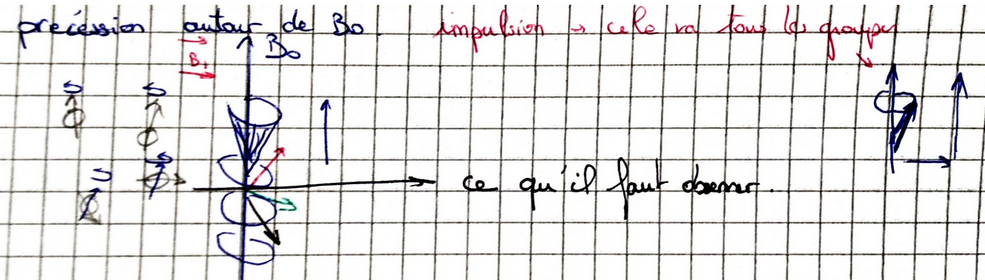 précession autour de Bo. impulsion → cela va tous les grouper
B₁
Bo
ce qu'il faut observer.